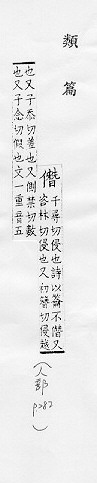 類篇
僭
千尋切侵也詩以籥不僭又
咨林切侵也又初簪切侵越
也又子忝切差也又側禁切數
也又子念切假也文一重音五
(人部 p282)